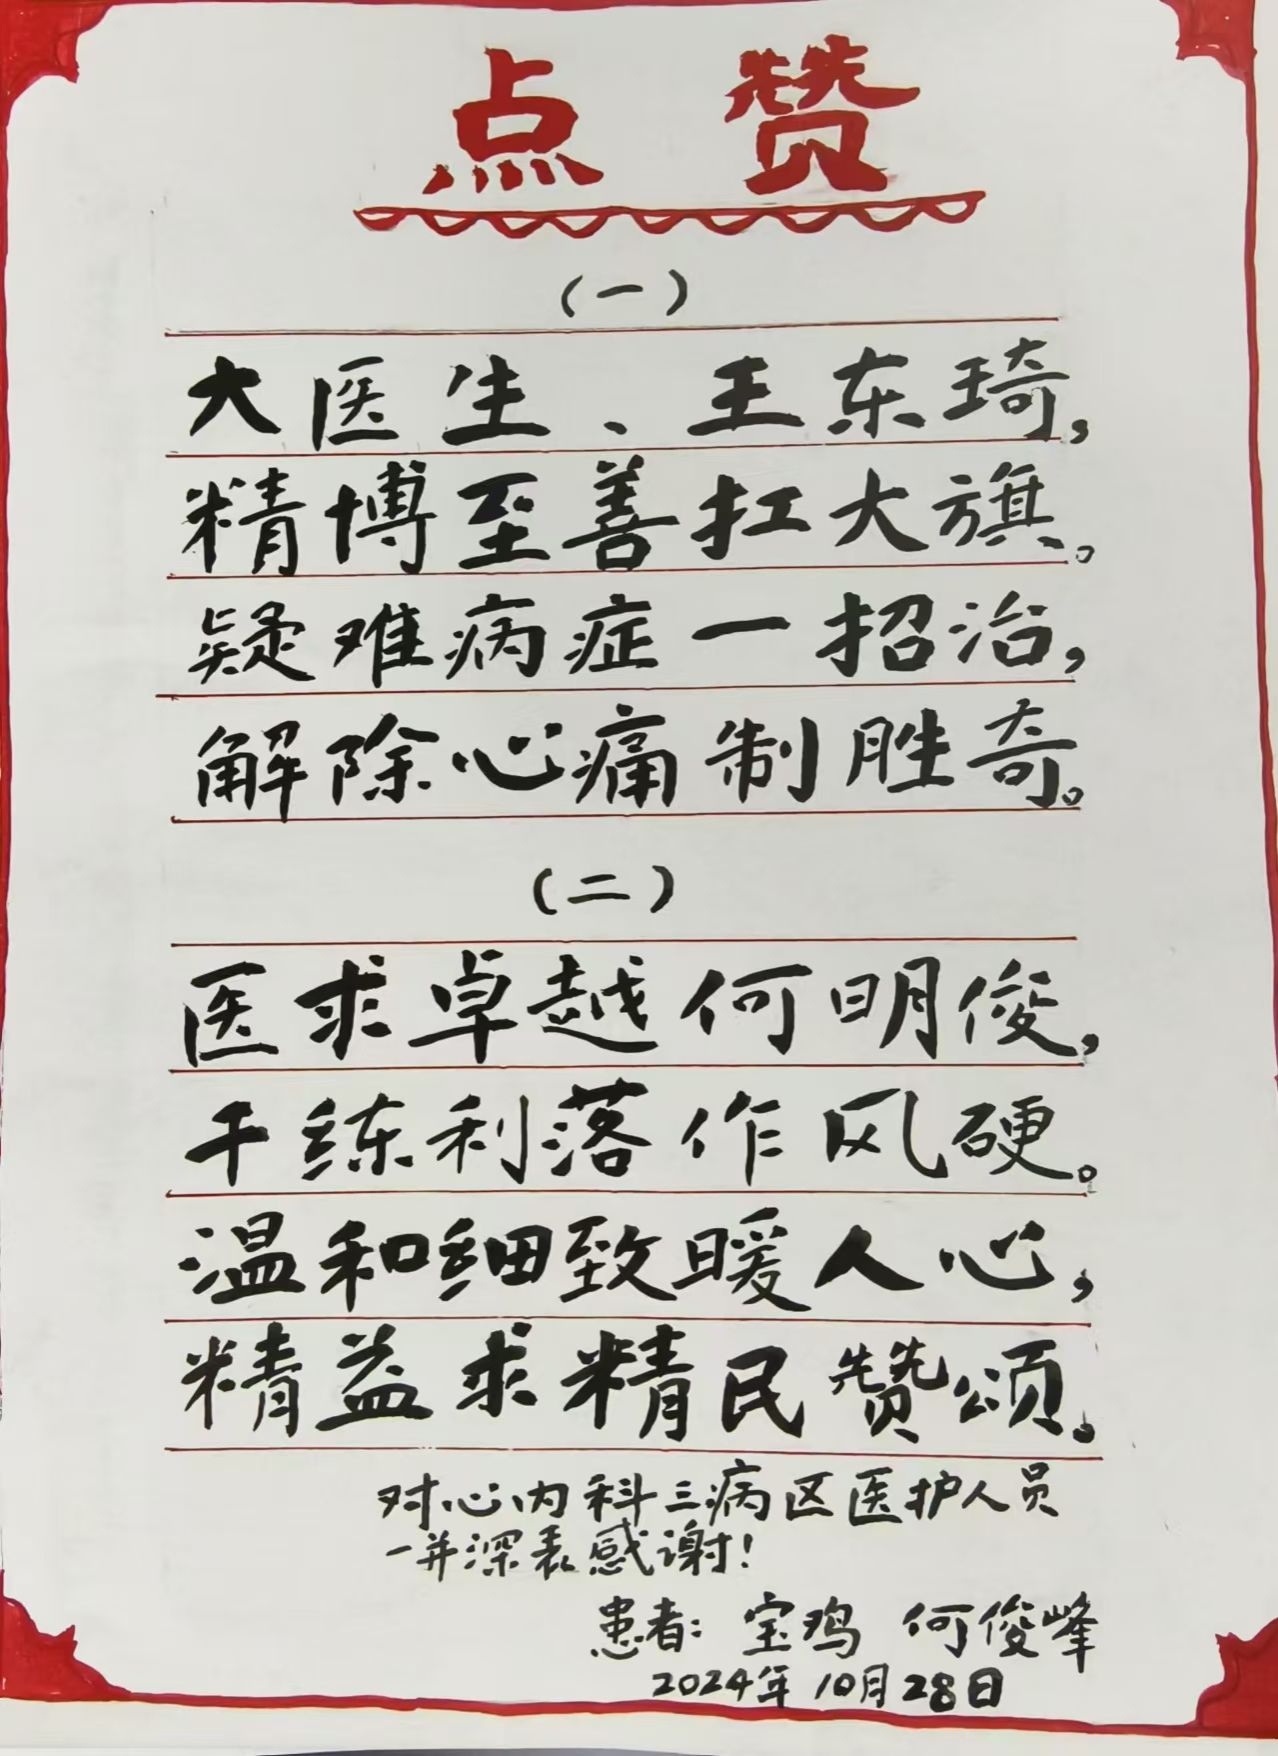 点赞
（一）
大医生、王东琦，
精博至善扛大旗。
疑难病症一招治，
解除心痛制胜奇。
（二）
医求卓越何明俊，
干练利落作风硬。
温和细致暖人心，
精益求精民赞颂。
对心内科三病区医护人员
一并深表感谢！
患者：宝鸡 何俊峰
2024年10月28日